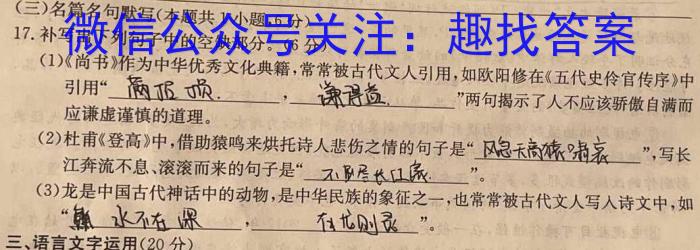 (三)名篇名句默写(本题共1小题,6分)
微信公众号关注：趣找答案
17.补写出下列句子中的空缺部分。(6分)
(1)《尚书》作为中华优秀文化典籍,常常被古代文人引用,如欧阳修在《五代史伶官传序》中
引用“满招损,谦得益”两句揭示了人不应该骄傲自满而
应谦虚谨慎的道理。
(2)杜甫《登高》中,借助猿鸣来烘托诗人悲伤之情的句子是“风急天高猿啸哀”,写长
江奔流不息、滚滚而来的句子是“不尽长江滚”。
(3)龙是中国古代神话中的动物,是中华民族的象征之一,也常常被古代文人写入诗文中,如
“水不在深,有龙则灵”。
三、语言文字运用(20分)